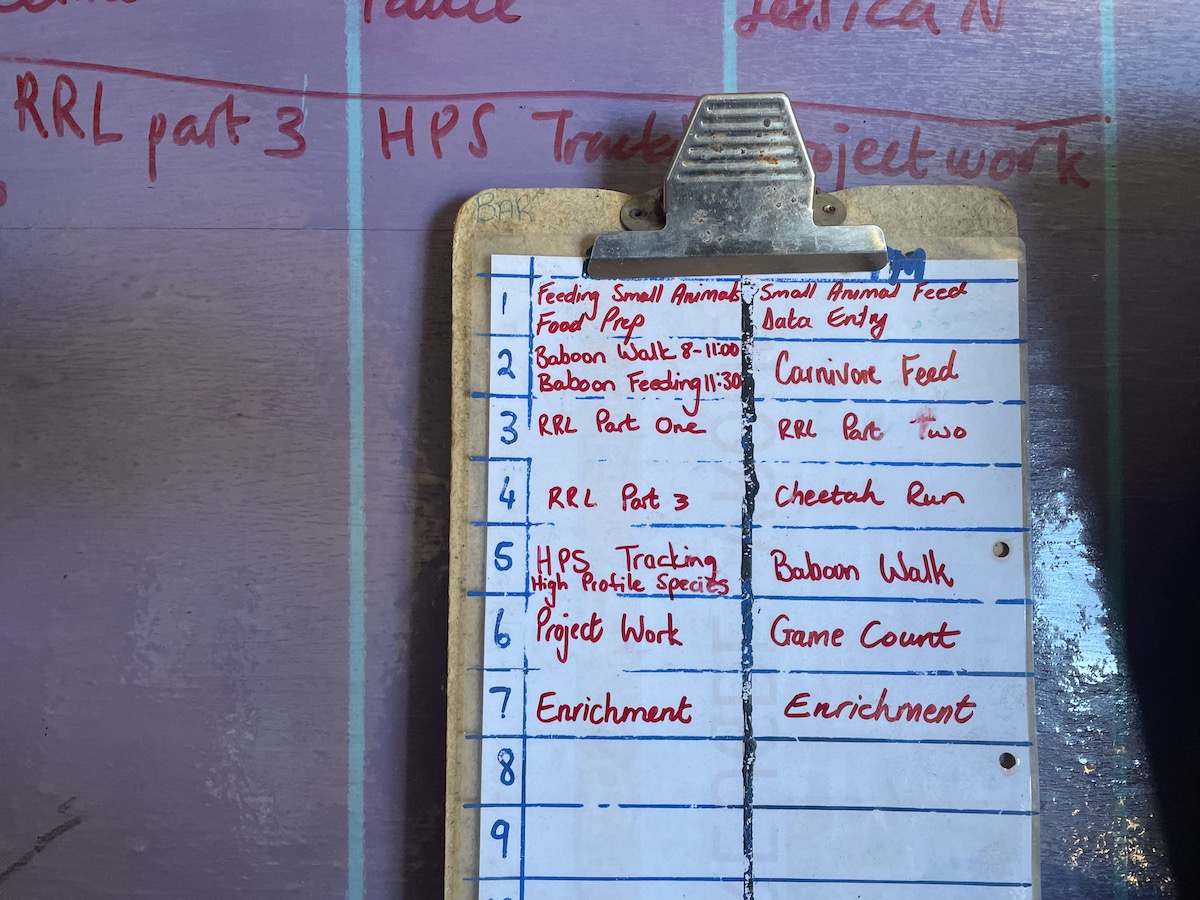 Jessica N
RRL part 3
HPS
work
BAR
PM
1
Feeding Small Animals
Food Prep
Small Animal Feed
Data Entry
2
Baboon Walk 8-11:00
Baboon Feeding 11:30
Carnivore Feed
3
RRL Part One
RRL Part Two
4
RRL Part 3
Cheetah Run
5
HPS Tracking
High Profile Species
Baboon Walk
6
Project Work
Game Count
7
Enrichment
Enrichment
8
9